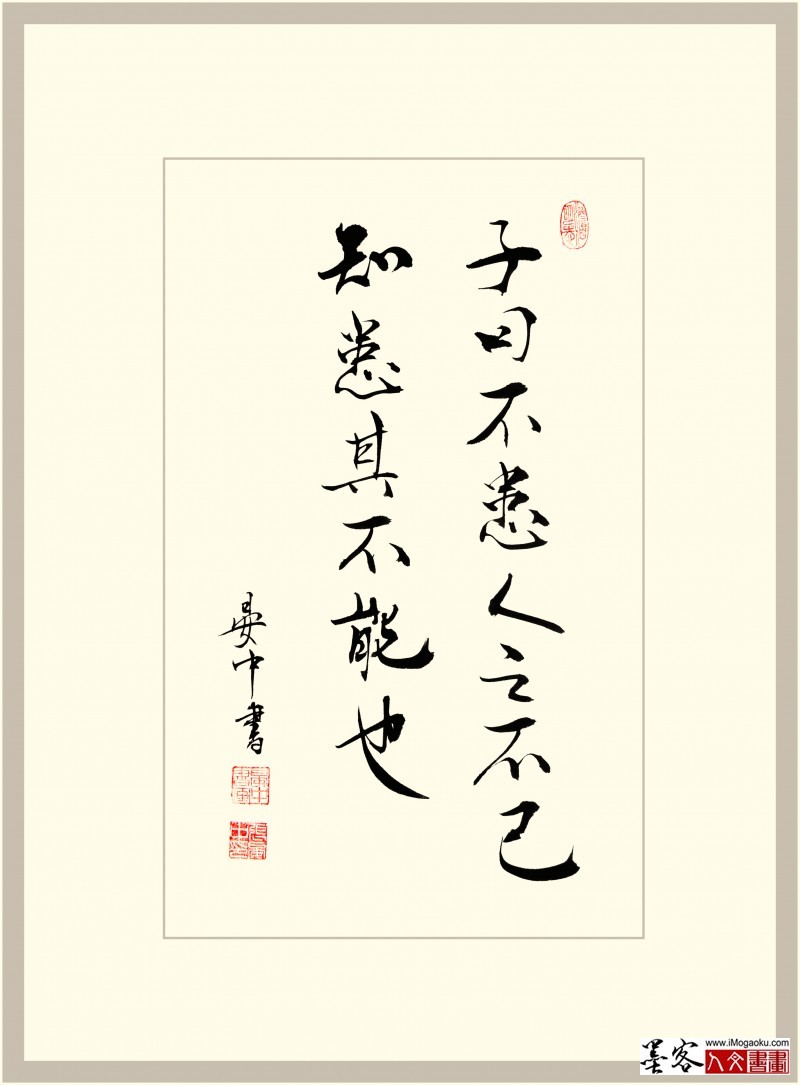 子曰不患人之不己
知患其不能也
晏中書
墨客
www.iMogaoku.com
人文書畫